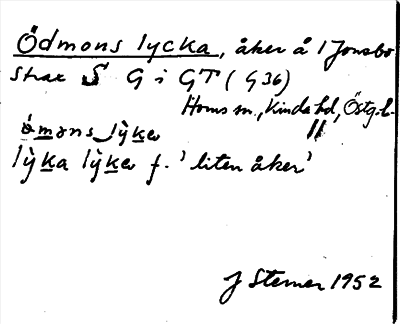 Ödmons lycka, åker å 1 Jonsbo
strax S G i GT (G36)
Horns sn., Kinda hd, Östg.l.
ómons lỳke
lỳka lỳker f. 'liten åker'
J Sterner 1952